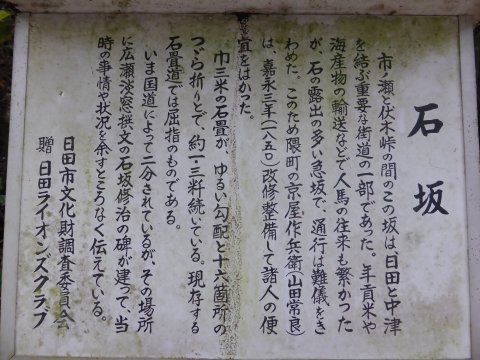 石坂
市ノ瀬と伏木峠の間のこの坂は日田と中津
を結ぶ重要な街道の一部であった。年貢米や
海産物の輸送などで人馬の往来も繁かった
が、石の露出の多い急坂で、通行は難儀をき
わめた。このため隈町の京屋作兵衛(山田常良)
は、嘉永三年(一八五〇)改修整備して諸人の便
宜をはかった。
巾三米の石畳が、ゆるい勾配と十六箇所の
つづら折りとで、約一・三粁続している。現存する
石畳道では屈指のものである。
いま国道によって二分されているが、その場所
に広瀬淡窓撰文の石坂修治の碑が建って、当
時の事情や状況を余すところなく伝えている。
日田市文化財調査委員会
贈 日田ライオンズクラブ